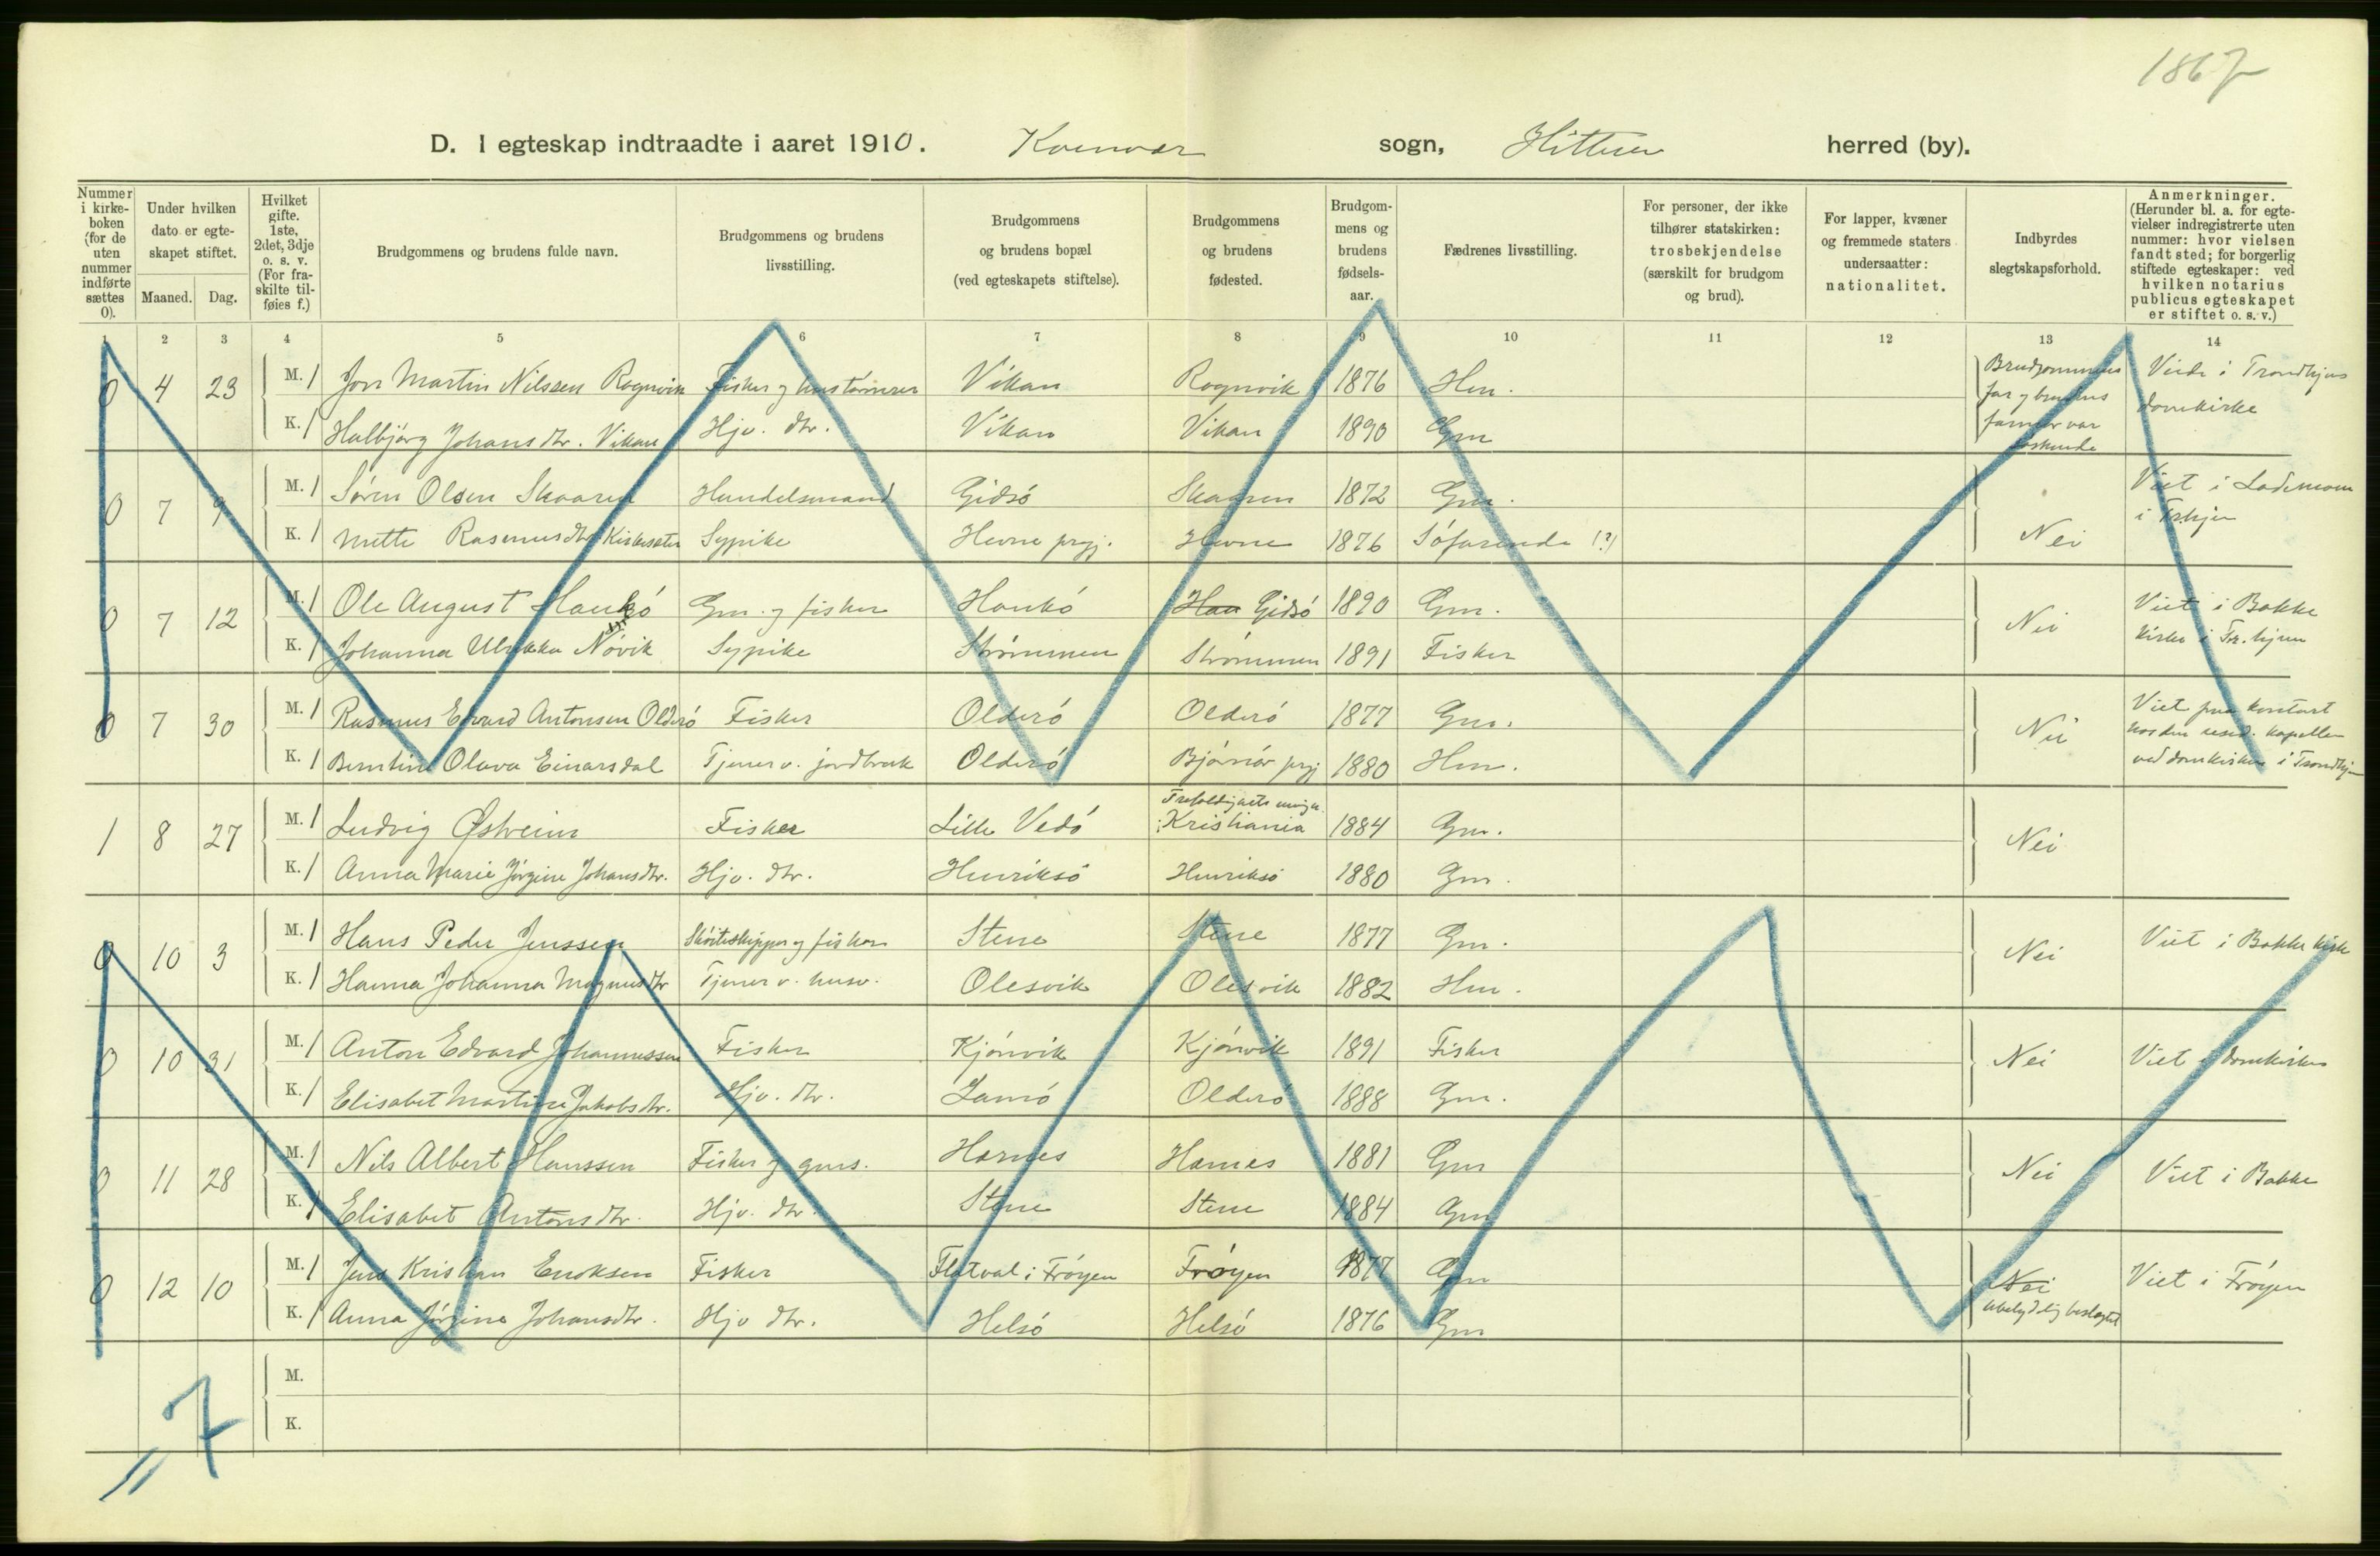 1867
D. I egteskap indtraadte i aaret 1910. Kvenvær sogn, Hitteren herred (by).
Nummer i kirke-boken (for de uten nummer indførte sættes 0).
Under hvilken dato er egte-skapet stiftet.
Maaned. Dag.
Hvilket gifte. 1ste, 2det, 3dje o. s. v. (For fra-skilte til-føies f.)
Brudgommens og brudens fulde navn.
Brudgommens og brudens livsstilling.
Brudgommens og brudens bopæl (ved egteskapets stiftelse).
Brudgommens og brudens fødested.
Brudgom-mens og brudens fødsels-aar.
Fædrenes livsstilling.
For personer, der ikke tilhører statskirken: trosbekjendelse (særskilt for brudgom og brud).
For lapper, kvæner og fremmede staters undersaatter: nationalitet.
Indbyrdes slegtskapsforhold.
Anmerkninger. (Herunder bl. a. for egte-vielser indregistrerte uten nummer: hvor vielsen fandt sted; for borgerlig stiftede egteskaper: ved hvilken notarius publicus egteskapet er stiftet o. s. v.)
1 2 3 4 5 6 7 8 9 10 11 12 13 14
0 4 23 M. 1 Jon Martin Nilssen Rognvik Fisker og hustømrer Vikan Rognvik 1876 Hm. Brudgommens far og brudens farmor var søskende Viede i Trondhjems domkirke
K. 1 Halbjørg Johansdtr. Vikan Hjv. dtr. Vikan Vikan 1890 Gm
0 7 9 M. 1 Søren Olsen Skaaren Handelsmand Gidsö Skaaren 1872 Gm. Nei Viet i Lademoen i Trhjem
K. 1 Mette Rasmusdtr Kirkesæter Sypike Hevne prgj. Hevne 1876 Söfarende (?)
0 7 12 M. 1 Ole August Haukö Gm. og fisker Haukö Hau Gidsö 1890 Gm. Nei Viet i Bakke kirke i Tr.hjem
K. 1 Johanna Ulrikka Növik Sypike Strömmen Strömmen 1891 Fisker
0 7 30 M. 1 Rasmus Edvard Antonsen Olderö Fisker Olderö Olderö 1877 Gm. Nei Viet paa kontoret hos den resid. kapellan ved domkirken i Trondhjem
K. 1 Berntine Olava Einarsdal Tjener v. jordbruk Olderö Bjørnör prgj 1880 Hm.
1 8 27 M. 1 Ludvig Østreim Fisker Lille Vedö Trefoldighets menigh. Kristiania 1884 Gm. Nei
K. 1 Anna Marie Jörgine Johansdtr. Hjv. dtr. Henriksö Henriksö 1880 Gm.
0 10 3 M. 1 Hans Peder Jenssen Skøiteskipper og fisker Stene Stene 1877 Gm. Nei Viet i Bakke kirke
K. 1 Hanna Johanna Magnusdtr Tjener v. husv. Olesvik Olesvik 1882 Hm.
0 10 31 M. 1 Anton Edvard Johannessen Fisker Kjönvik Kjönvik 1891 Fisker Nei Viet i domkirken
K. 1 Elisabet Martine Jakobsdtr. Hjv. dtr. Lamö Olderö 1888 Gm.
0 11 28 M. 1 Nils Albert Hanssen Fisker og gms. Hamnes Hamnes 1881 Gm Nei Viet i Bakke
K. 1 Elisabet Antonsdtr. Hjv. dtr. Stene Stene 1884 Gm
0 12 10 M. 1 Jens Kristian Enoksen Fisker Flatval i Fröyen Fröyen 1877 Gm Nei ubetydelig beslægtet Viet i Fröyen
K. 1 Anna Jörgine Johansdtr. Hjv dtr. Helsö Helsö 1876 Gm
M.
K.
7